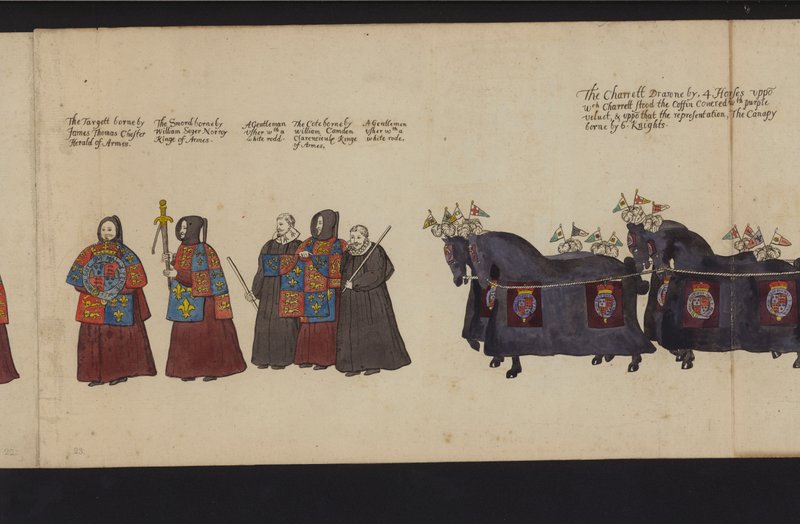 The Targett borne by
James Thomas Chester
Herald of Armes.
The Sword borne by
William Seger Norroy
Kinge of Armes.
A Gentleman
vsher wth a
white rodd.
The Cote borne by
William Camden
Clarencieulx Kinge
of Armes.
A Gentleman
vsher wth a
white rode.
The Charrett Drawne by. 4 Horses vppō
wch Charrett stood the Coffin Couered wth purple
veluet, & vppō that the representation, The Canapy
borne by 6. Knights.
22.
23.